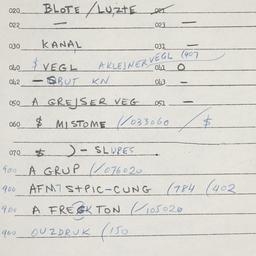 020 BLOTE /LUZTE 021
022 — 023 —
030 KANAL 031 —
040 $ VEGL A KLEJNERVEGL (407 041 O
042 — SBUT KN 043 —
050 A GREJSER VEG 051 —
060 $ MISTOME (/033060 /$
070 $ )- SLUPES
900 A GRUP (/076020
900 AFM7 S+PIC-CUNG (784 (402
900 A FRESKTON (/105020
900 DUZDRUK (150